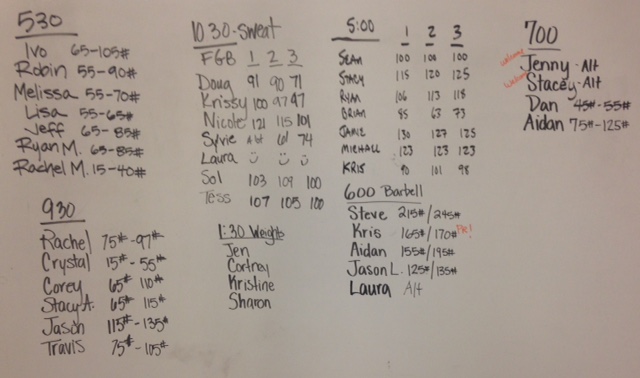 530
Ivo 65-105#
Robin 55-90#
Melissa 55-70#
Lisa 55-65#
Jeff 65-85#
Ryan M. 65-85#
Rachel M. 15-40#
930
Rachel 75#-97#
Crystal 15#-55#
Corey 65# 110#
Stacy A. 65# 115#
Jason 115#-135#
Travis 75#-105#
1030-sweat
FGB 1 2 3
Doug 91 90 71
Krissy 100 97 97
Nicole 121 115 101
Sylvie Alt 61 74
Laura
Sol 103 109 100
Tess 107 105 100
1:30 Weights
Jen
Cortney
Kristine
Sharon
5:00 1 2 3
SEAN 100 100 100
STACY 115 120 125
RYAN 106 113 118
BRIAN 85 63 73
JANE 130 127 125
MICHAEL 123 123 123
KRIS 90 101 98
600 Barbell
Steve 215#/245#
Kris 165#/170# PR!
Aidan 155#/195#
Jason L. 125#/135#
Laura Alt
700
welcome Jenny-Alt
welcome Stacey-Alt
Dan 45#-55#
Aidan 75#-125#